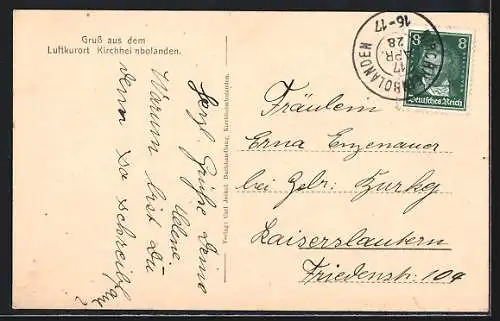 Gruß aus dem
Luftkurort Kirchheinbolanden.
Herzl. Grüße Deine
Helene.
Warum bist Du
denn so schreibf
Verlag: Carl Jeckel, Buchhandlung, Kirchheimbolanden.
BOLANDEN
17
APR.
28
16-17
8 8
Deutsches Reich
Fräulein
Erna Enzenauer
bei Gebr.
Kaiserslautern
Friedenstr. 104